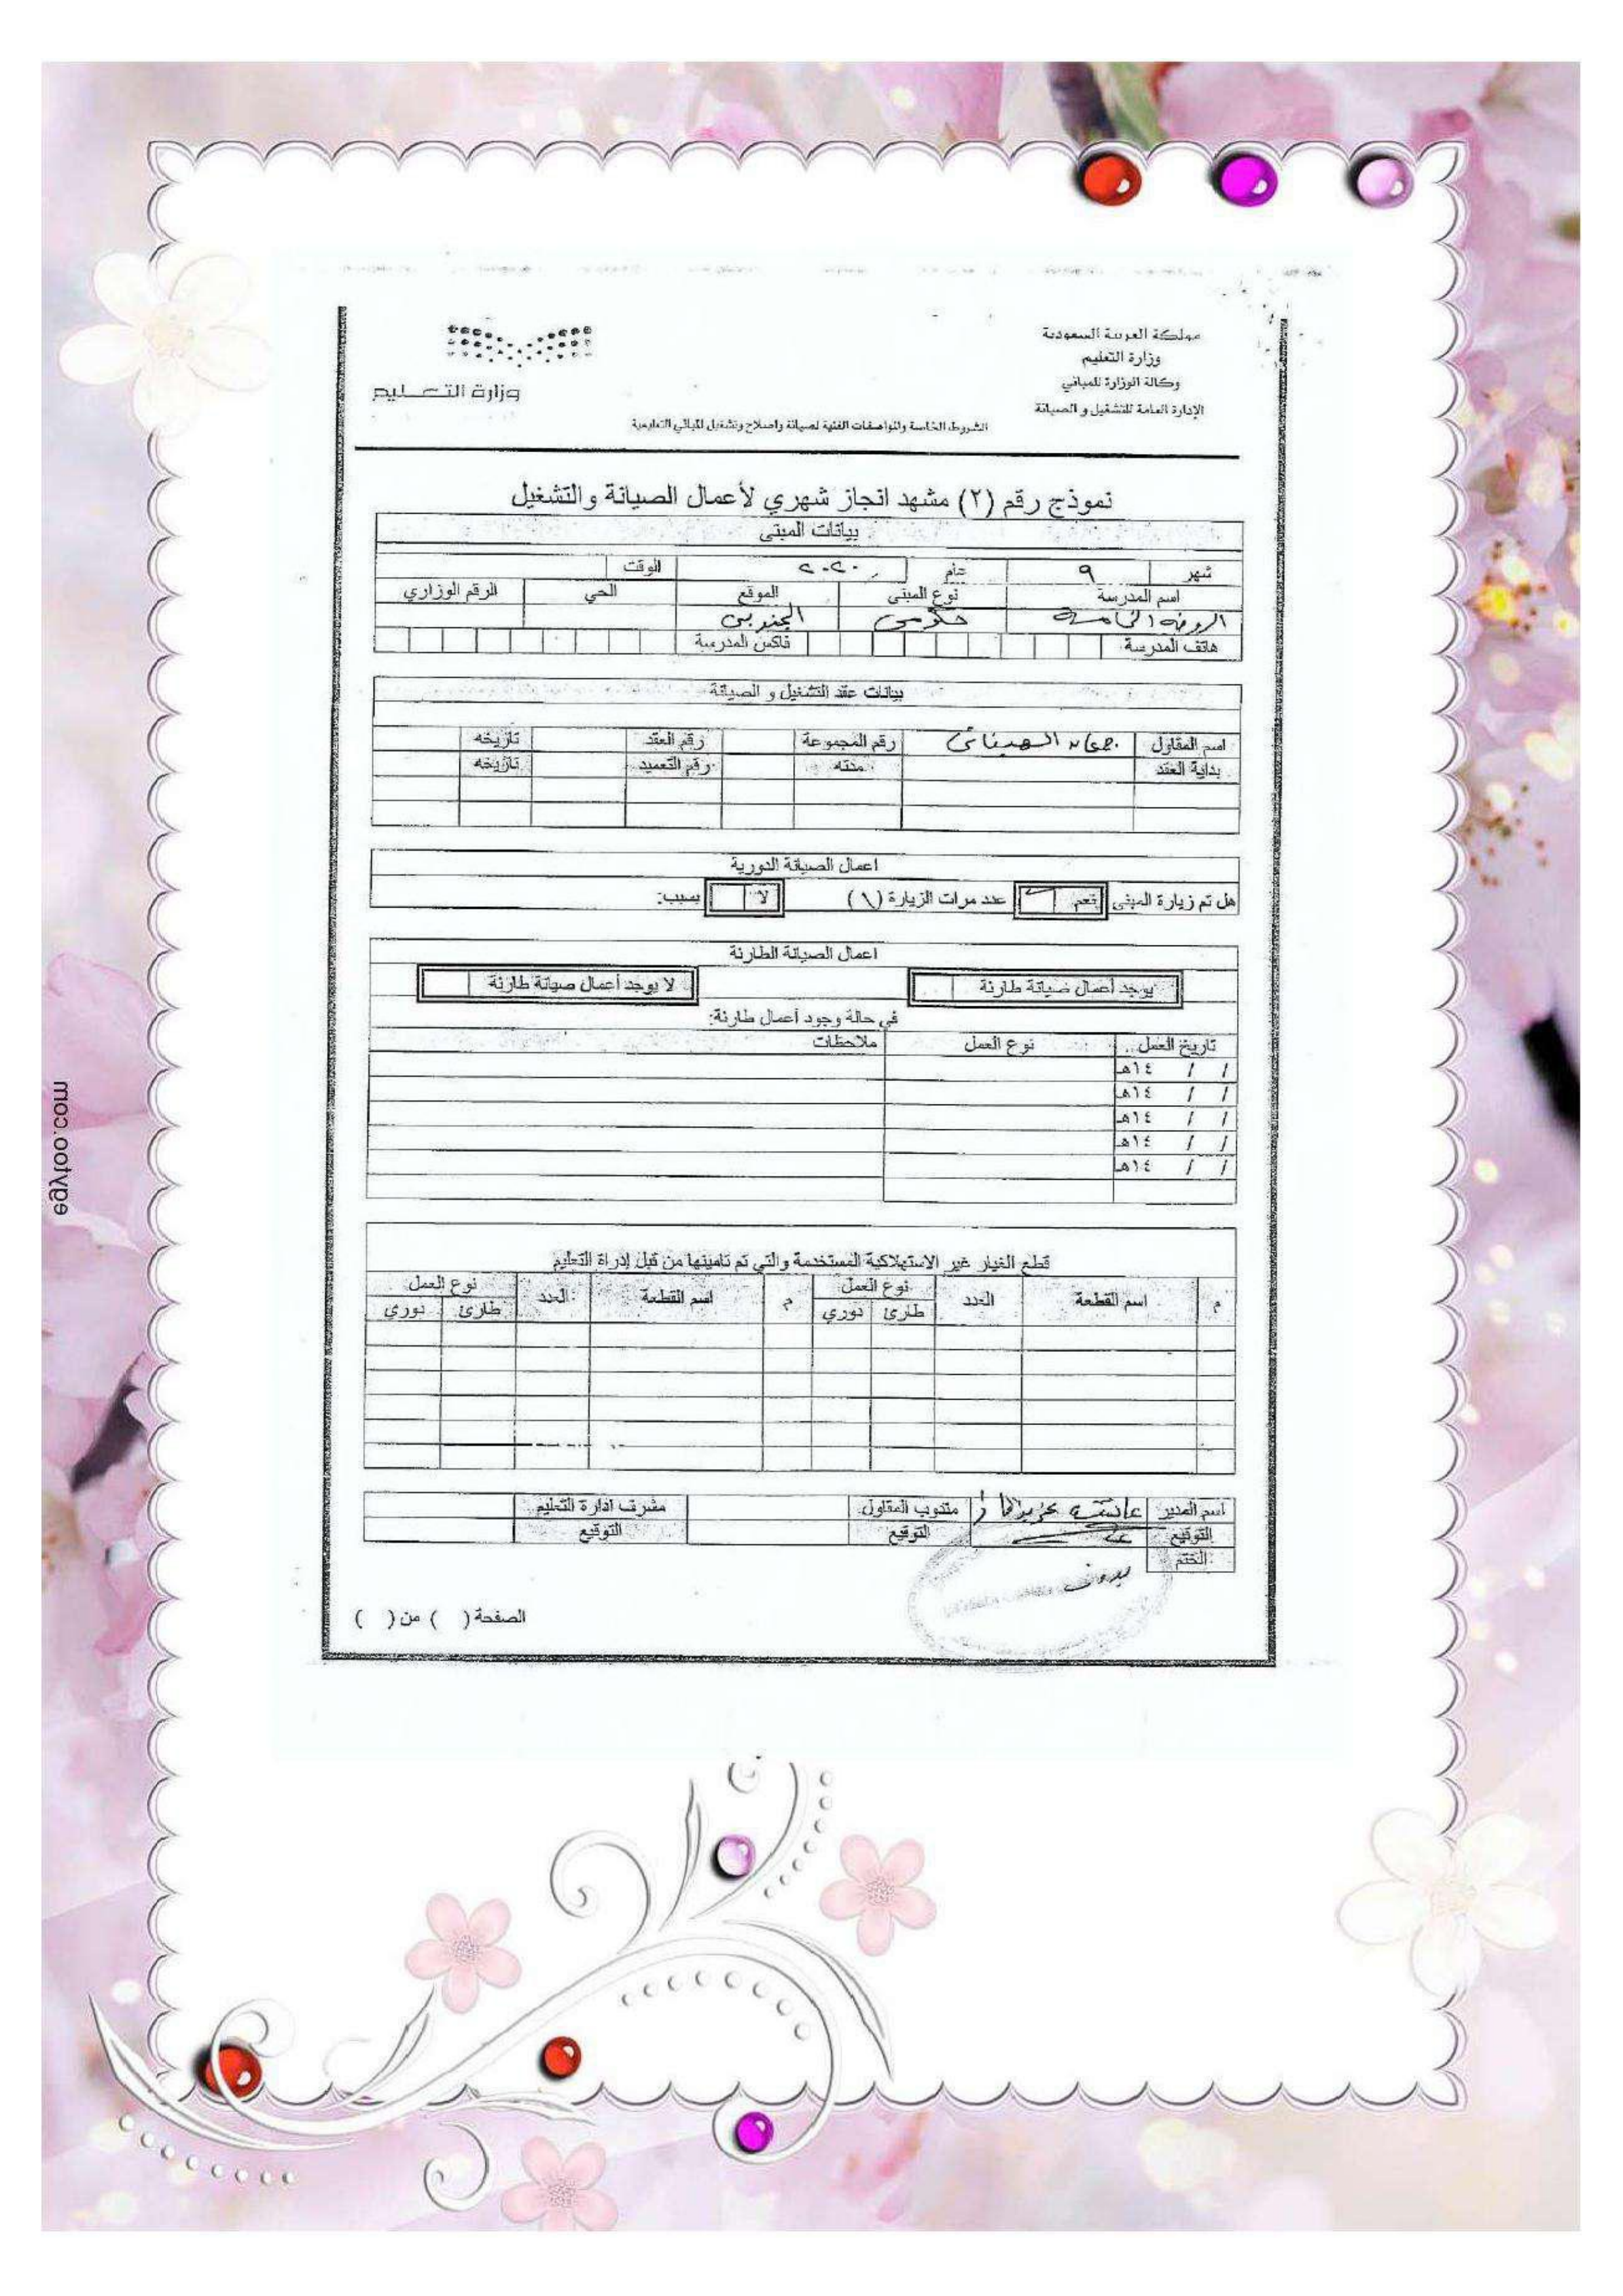 مملكة العربية السعودية
وزارة التعليم
وكالة الوزارة للمباني
الإدارة العامة للتشغيل و الصيانة
وزارة التعليم
الشروط الخاصة والمواصفات الفنية لصيانة واصلاح وتشغيل المباني التعليمية
نموذج رقم (٢) مشهد انجاز شهري لأعمال الصيانة والتشغيل
بيانات المبنى
شهر ٩ عام ٢٠٢٠ الوقت
اسم المدرسة نوع المبنى الموقع الحي الرقم الوزاري
الروضة الخامسة حكومي
هاتف المدرسة فاكس المدرسة
بيانات عقد التشغيل و الصيانة
اسم المقاول رقم المجموعة رقم العقد تاريخه
بداية العقد مدته رقم التعميد تاريخه
اعمال الصيانة الدورية
هل تم زيارة المبنى نعم عدد مرات الزيارة (١) لا بسبب:
اعمال الصيانة الطارئة
يوجد أعمال صيانة طارئة لا يوجد أعمال صيانة طارئة
في حالة وجود أعمال طارئة:
تاريخ العمل نوع العمل ملاحظات
/ / ١٤هـ
/ / ١٤هـ
/ / ١٤هـ
/ / ١٤هـ
/ / ١٤هـ
قطع الغيار غير الاستهلاكية المستخدمة والتي تم تامينها من قبل إدراة التعليم
م اسم القطعة العدد نوع العمل م اسم القطعة العدد نوع العمل
طارئ دوري طارئ دوري
اسم المدير عائشة مندوب المقاول مشرف ادارة التعليم
التوقيع التوقيع التوقيع
الختم
الصفحة ( ) من ( )
egytoo.com